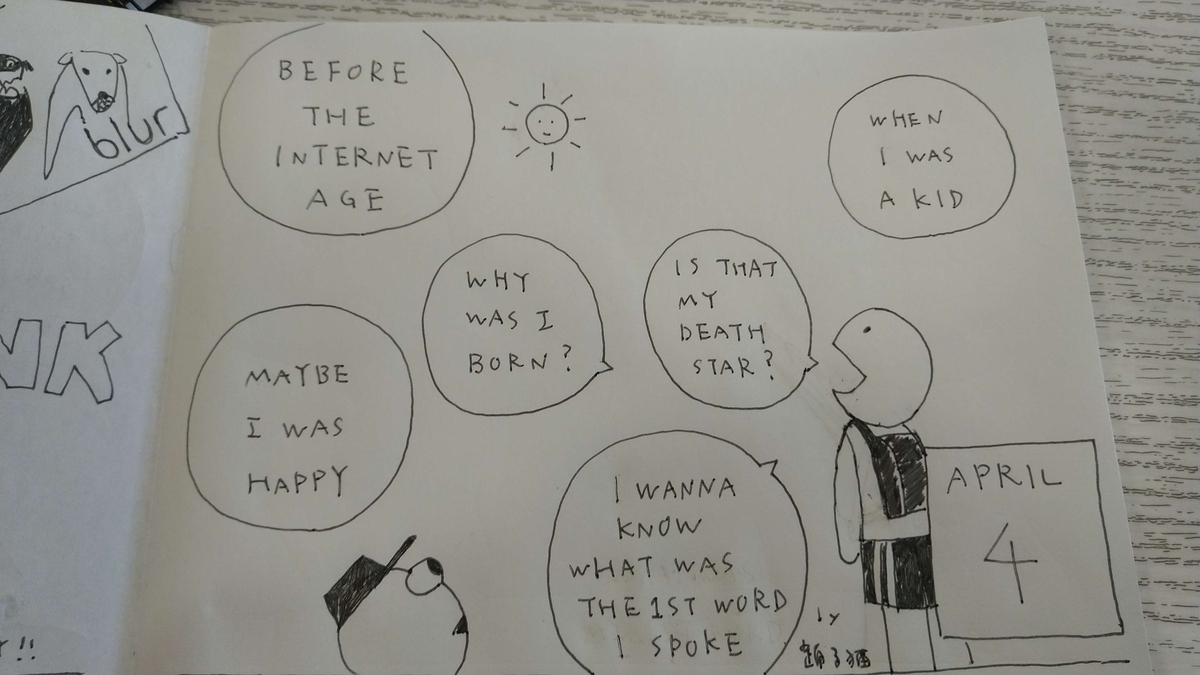 blur
NK
Y!!
BEFORE
THE
INTERNET
AGE
WHEN
I WAS
A KID
WHY
WAS I
BORN?
IS THAT
MY
DEATH
STAR?
MAYBE
I WAS
HAPPY
I WANNA
KNOW
WHAT WAS
THE 1ST WORD
I SPOKE
APRIL
4